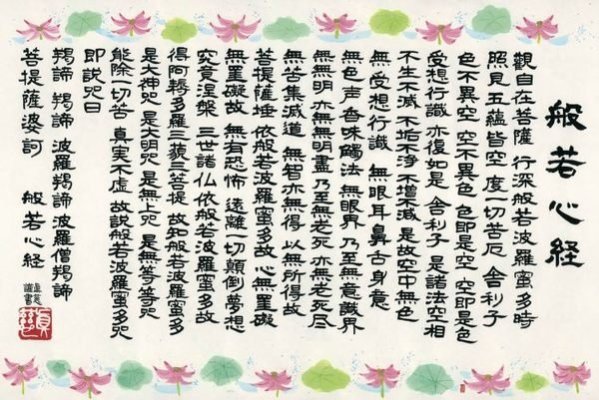 般若心経
觀自在菩薩 行深般若波羅蜜多時
照見五蘊皆空 度一切苦厄 舎利子
色不異空 空不異色 色即是空 空即是色
受想行識 亦復如是 舎利子 是諸法空相
不生不滅 不垢不浄 不増不減 是故空中無色
無受想行識 無眼耳鼻舌身意
無色声香味觸法 無眼界 乃至無意識界
無無明 亦無無明盡 乃至無老死 亦無老死尽
無苦集滅道 無智亦無得 以無所得故
菩提薩埵 依般若波羅蜜多故 心無罣礙
無罣礙故 無有恐怖 遠離一切顛倒夢想
究竟涅槃 三世諸仏 依般若波羅蜜多故
得阿耨多羅三藐三菩提 故知般若波羅蜜多
是大神呪 是大明呪 是無上呪 是無等等呪
能除一切苦 真実不虚 故説般若波羅蜜多呪
即説呪曰
羯諦 羯諦 波羅羯諦 波羅僧羯諦
菩提薩婆訶 般若心経